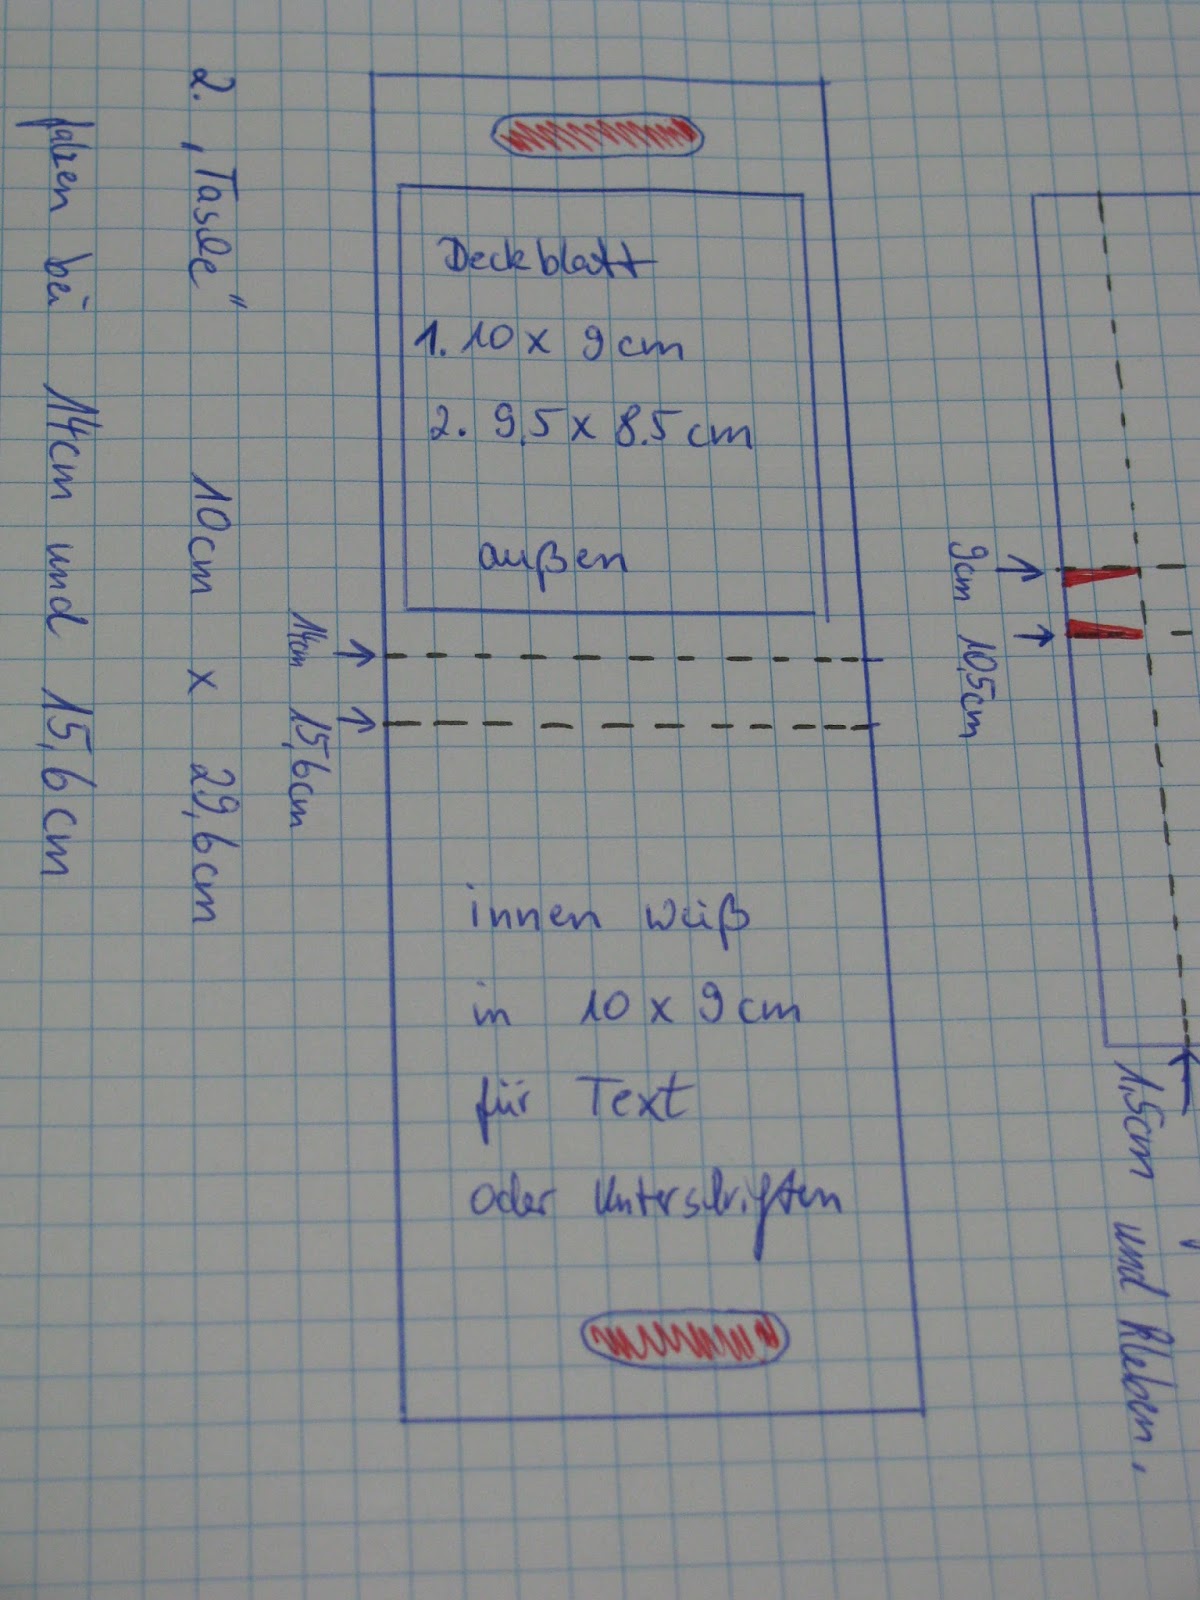 Deckblatt
1. 10 x 9 cm
2. 9,5 x 8,5 cm
außen
innen weiß
in 10 x 9 cm
für Text
oder Unterschriften
9cm 10,5cm
1,5cm und kleben,
14cm 15,6cm
2. „Tasche" 10cm x 29,6cm
falzen bei 14cm und 15,6cm